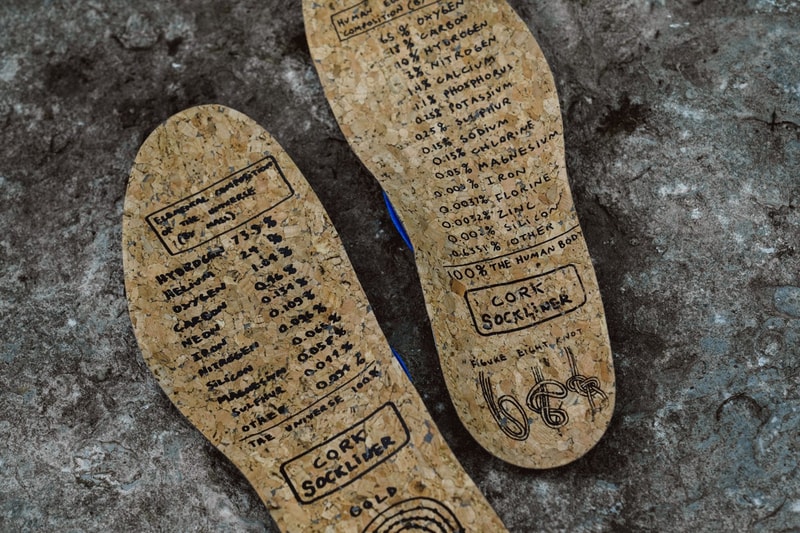 ELEMENTAL COMPOSITION
OF THE UNIVERSE
(BY MASS)
HYDROGEN 73.9%
HELIUM
OXYGEN 1.04%
CARBON 0.46%
NEON 0.134%
IRON 0.109%
NITROGEN 0.096%
SILICON
MAGNESIUM
SULPHUR
OTHER
THE UNIVERSE 100%
CORK
SOCKLINER
GOLD
HUMAN
COMPOSITION
65% OXYGEN
18% CARBON
10% HYDROGEN
3% NITROGEN
CALCIUM
PHOSPHORUS
0.25% POTASSIUM
0.25% SULPHUR
0.15% SODIUM
0.15% CHLORINE
0.05% MAGNESIUM
IRON
0.0037% FLORINE
0.0032% ZINC
0.002% SILICON
0.6351% OTHER
100% THE HUMAN BODY
CORK
SOCKLINER
FIGURE EIGHT KNOT